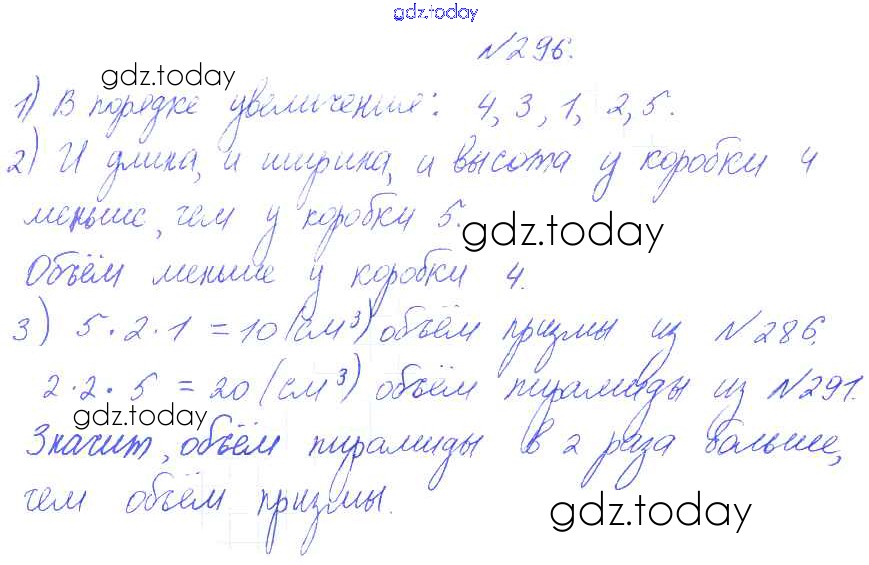 gdz.today
№296.
gdz.today
1) В порядке увеличения: 4, 3, 1, 2, 5.
2) И длина, и ширина, и высота у коробки 4
меньше, чем у коробки 5.
gdz.today
Объём меньше у коробки 4.
3) 5·2·1 = 10 (см³) объём призмы из №286.
2·2·5 = 20 (см³) объём пирамиды из №291.
gdz.today
Значит, объём пирамиды в 2 раза больше,
чем объём призмы.
gdz.today